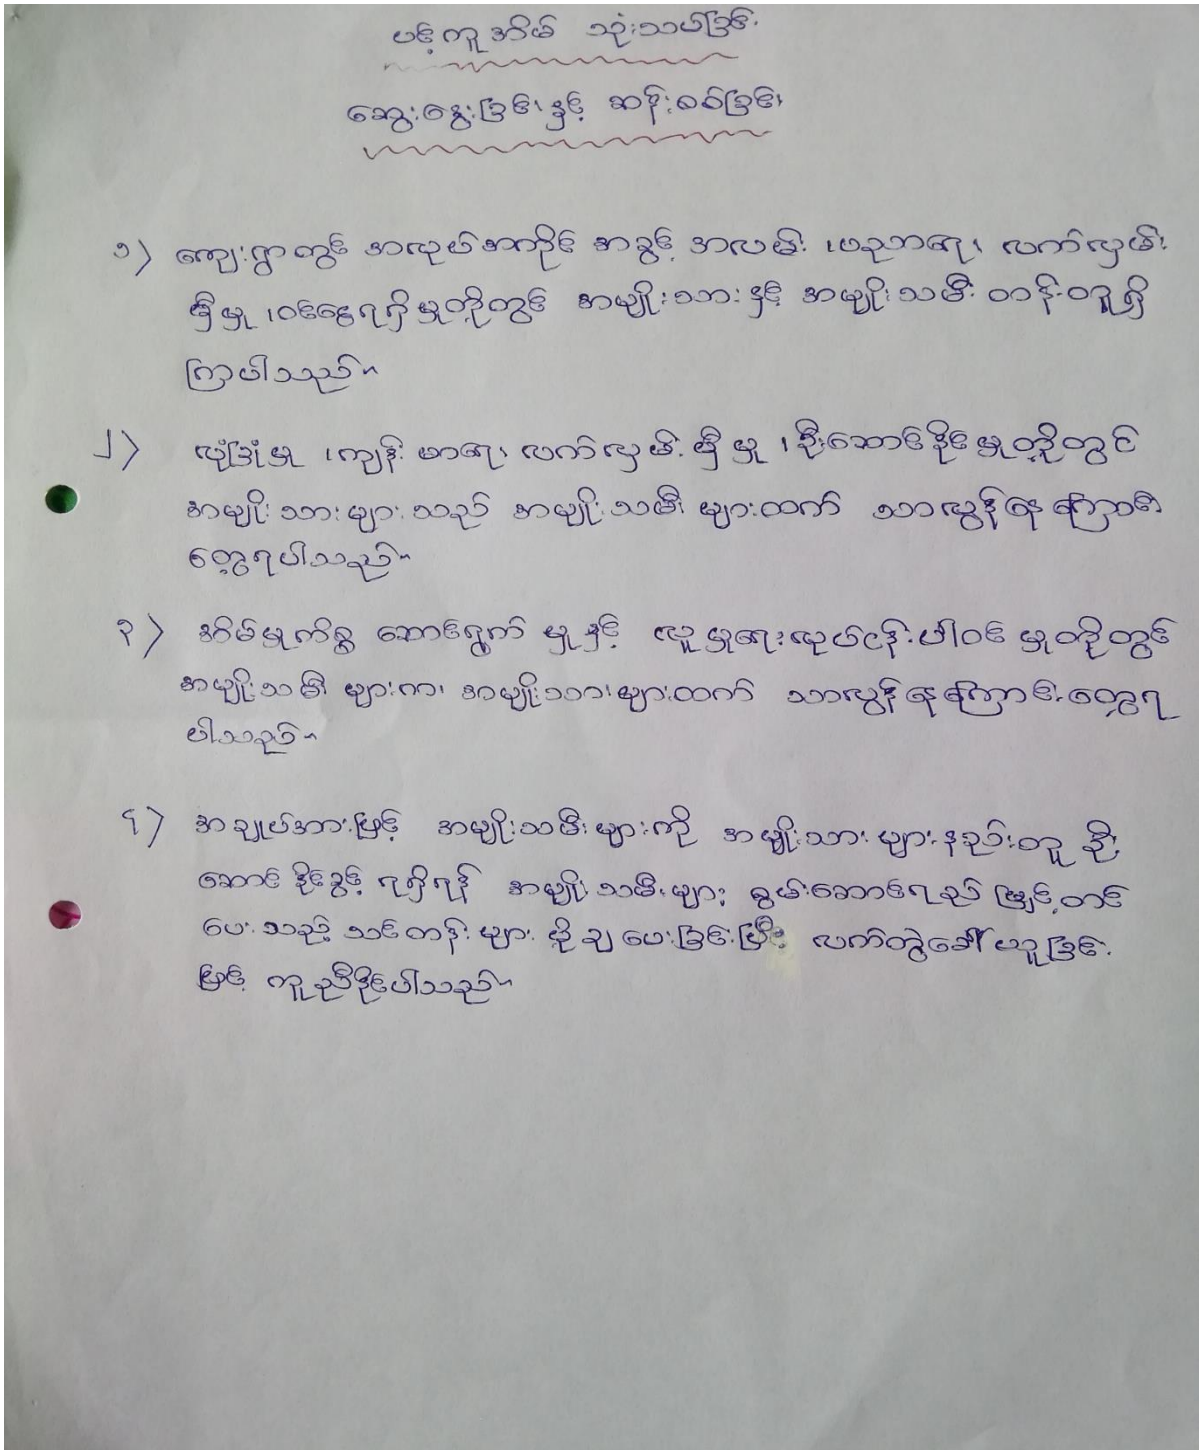 ပင့်ကူအိမ် သုံးသပ်ခြင်း
ဆွေးနွေးခြင်းနှင့် ဆန်းစစ်ခြင်း
၁) ကျေးရွာတွင် အလုပ်အကိုင် အခွင့် အလမ်း ၊ပညာရေး၊ လက်လှမ်း
မှီမှု ၊ဝင်ငွေရရှိမှုတို့တွင် အမျိုးသားနှင့် အမျိုးသမီး တန်းတူရှိ
ကြပါသည်။
၂) လုံခြုံမှု ၊ကျန်းမာရေး၊ လက်လှမ်း မှီ မှု ၊ဦးဆောင်နိုင်မှုတို့တွင်
အမျိုးသားများသည် အမျိုးသမီးများထက် သာလွန်နေကြောင်း
တွေ့ရပါသည်။
၃) အိမ်မှုကိစ္စ ဆောင်ရွက် မှုနှင့် လူမှုရေးလုပ်ငန်းပါဝင် မှုတို့တွင်
အမျိုးသမီး များက၊ အမျိုးသားများထက် သာလွန်နေကြောင်းတွေ့ရ
ပါသည်။
၄) အချုပ်အားဖြင့် အမျိုးသမီးများကို အမျိုးသားများနည်းတူ ဦး
ဆောင်နိုင်ခွင့် ရရှိရန် အမျိုးသမီးများ စွမ်းဆောင်ရည် မြှင့်တင်
ပေးသည့် သင်တန်းများ ပို့ချပေးခြင်းပြီး လက်တွဲခေါ်ယူခြင်း
ဖြင့် ကူညီနိုင်ပါသည်။